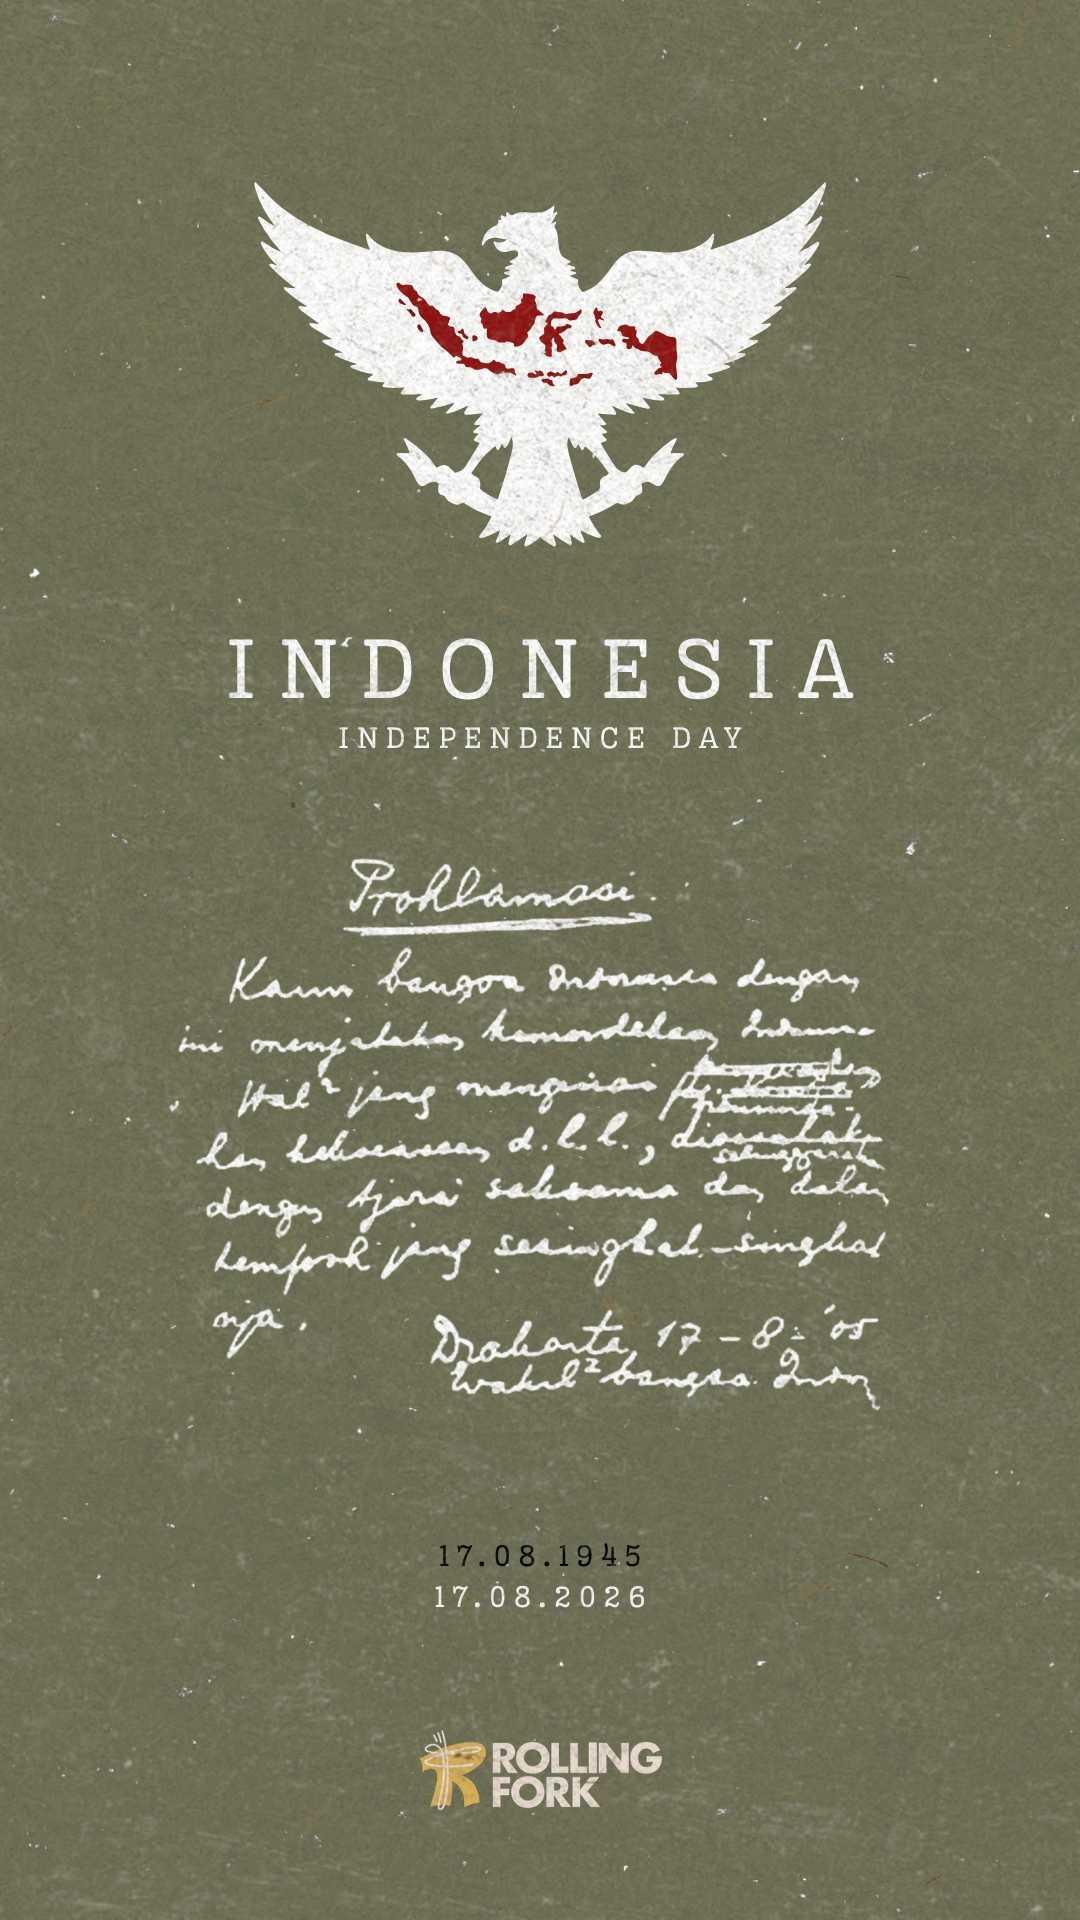 INDONESIA
INDEPENDENCE DAY
Proklamasi.
Kami bangsa Indonesia dengan
ini menjatakan kemerdekaan Indonesia.
Hal² jang mengenai
kekoeasaan d.l.l.,
dengan tjara saksama dan dalam
tempoh jang sesingkat-singkat
nja.
Djakarta, 17 - 8 - '05
Wakil² bangsa Indon
17.08.1945
17.08.2026
ROLLING
FORK